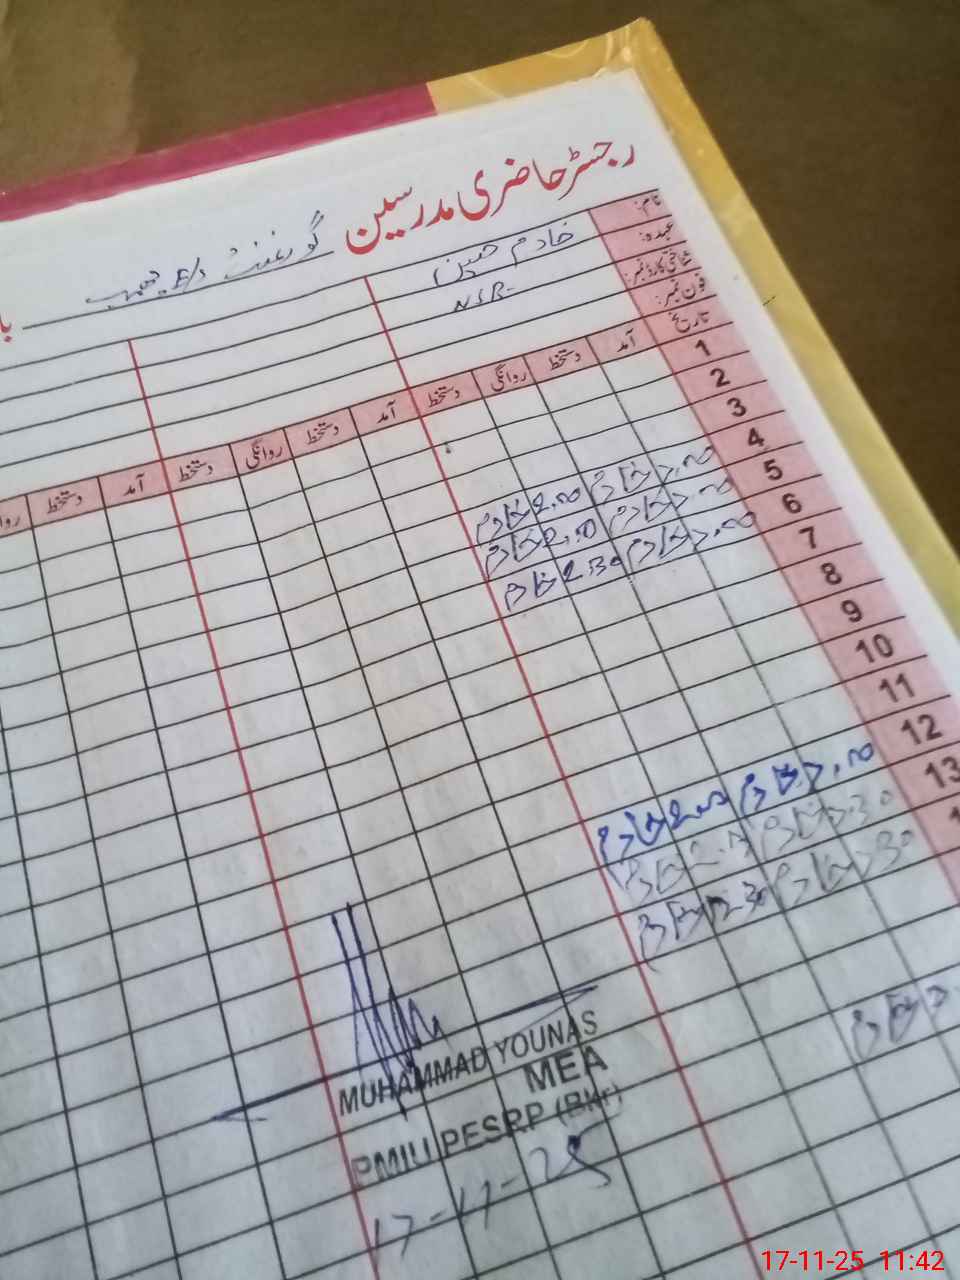 رجسٹر حاضری مدرسین گورنمنٹ
نام: خادم حسین
عہدہ: NSR-
شناختی کارڈ نمبر:
فون نمبر:
تاریخ آمد دستخط روانگی دستخط آمد دستخط روانگی دستخط آمد دستخط
1
2
3
4 7.00 خادم 2.00 خادم
5 7.00 خادم 2.00 خادم
6 7.00 خادم 2.30 خادم
7
8
9
10
11
12 7.00 خادم 2.00 خادم
13 7.30 خادم خادم
7.30 خادم 12.30 خادم
خادم
MUHAMMAD YOUNAS
MEA
PMIU PESRP (Bkr)
17-11-25
17-11-25 11:42